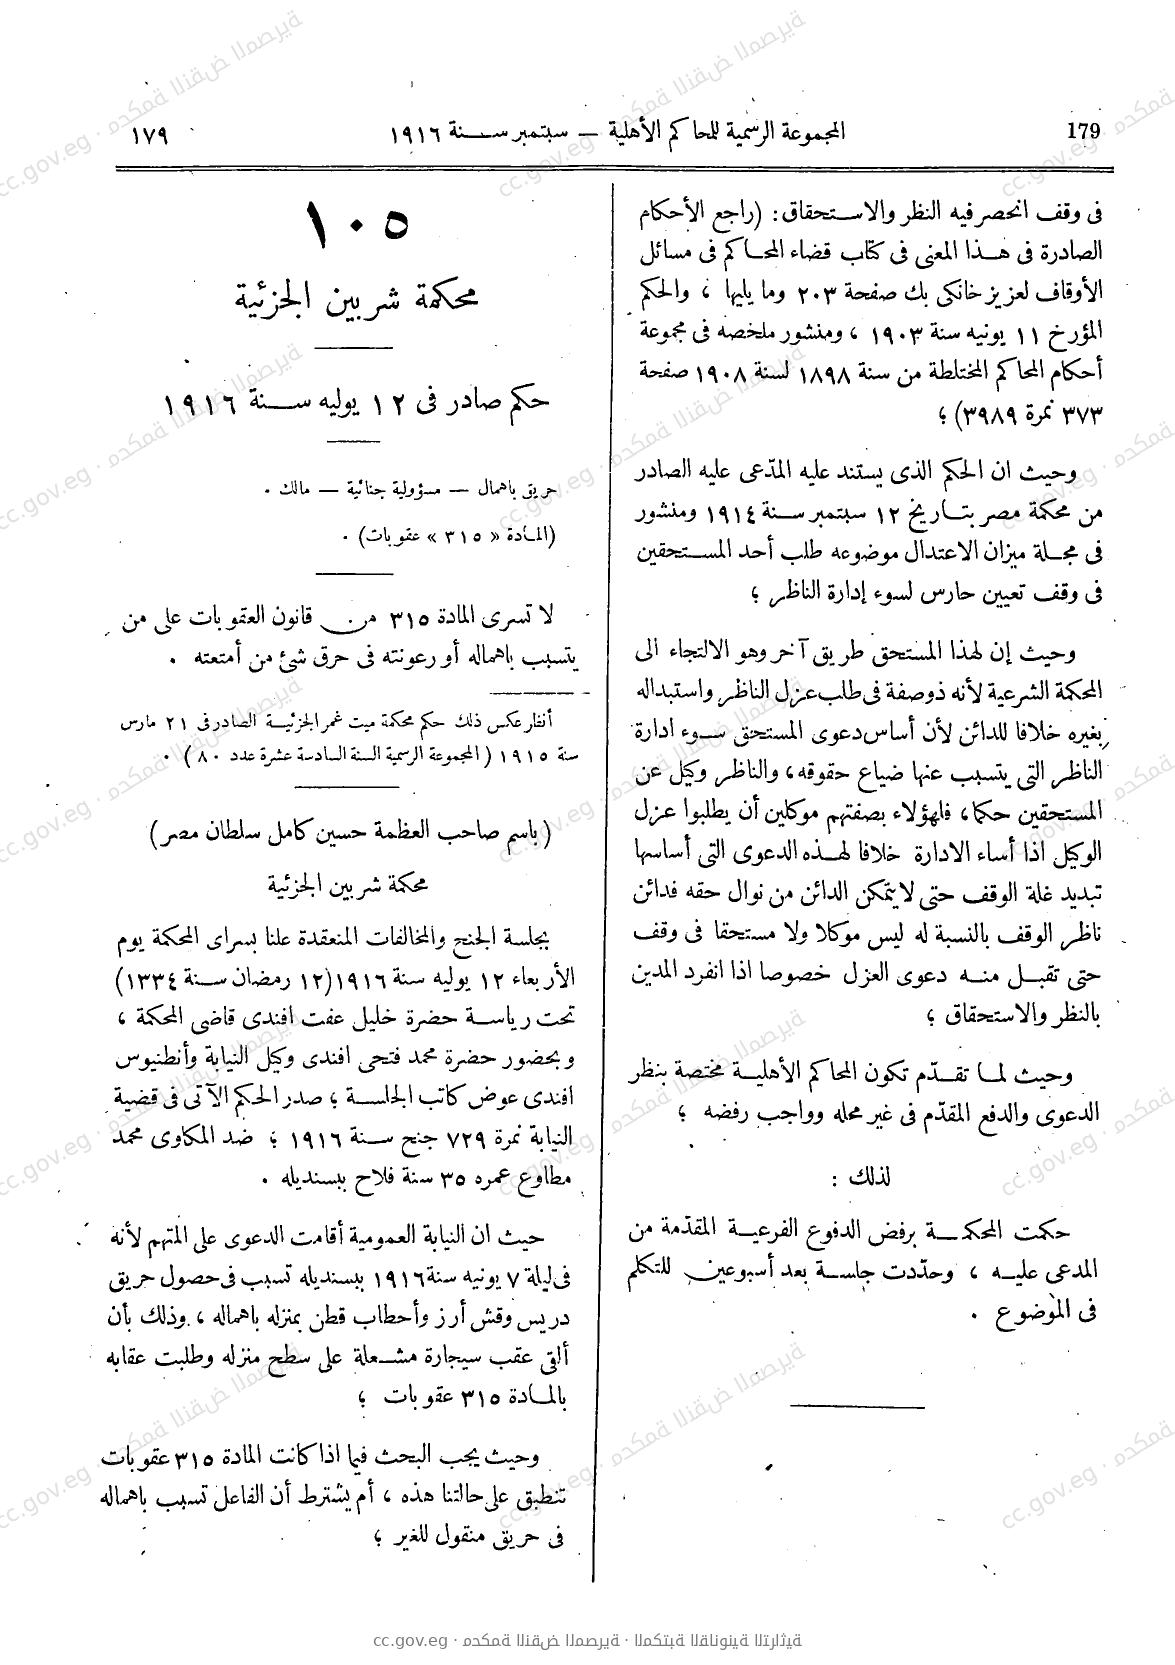 179
المجموعة الرسمية للمحاكم الأهلية — سبتمبر سنة ١٩١٦
١٧٩
فى وقف انحصر فيه النظر والاستحقاق: (راجع الأحكام
الصادرة فى هذا المعنى فى كتاب قضاء المحاكم فى مسائل
الأوقاف لعزيز خانكى بك صفحة ٢٠٣ وما يليها ، والحكم
المؤرخ ١١ يونيه سنة ١٩٠٣ ، ومنشور ملخصه فى مجموعة
أحكام المحاكم المختلطة من سنة ١٨٩٨ لسنة ١٩٠٨ صفحة
٣٧٣ نمرة ٣٩٨٩) ؛
وحيث ان الحكم الذى يستند عليه المدّعى عليه الصادر
من محكمة مصر بتاريخ ١٢ سبتمبر سنة ١٩١٤ ومنشور
فى مجلة ميزان الاعتدال موضوعه طلب أحد المستحقين
فى وقف تعيين حارس لسوء إدارة الناظر ؛
وحيث إن لهذا المستحق طريق آخر وهو الالتجاء الى
المحكمة الشرعية لأنه ذو صفة فى طلب عزل الناظر واستبداله
بغيره خلافا للدائن لأن أساس دعوى المستحق سوء ادارة
الناظر التى يتسبب عنها ضياع حقوقه، والناظر وكيل عن
المستحقين حكما، فلهؤلاء بصفتهم موكلين أن يطلبوا عزل
الوكيل اذا أساء الادارة خلافا لهذه الدعوى التى أساسها
تبديد غلة الوقف حتى لايتمكن الدائن من نوال حقه فدائن
ناظر الوقف بالنسبة له ليس موكلا ولا مستحقا فى وقف
حتى تقبل منه دعوى العزل خصوصا اذا انفرد المدين
بالنظر والاستحقاق ؛
وحيث لما تقدّم تكون المحاكم الأهلية مختصة بنظر
الدعوى والدفع المقدّم فى غير محله وواجب رفضه ؛
لذلك :
حكمت المحكمة برفض الدفوع الفرعية المقدّمة من
المدعى عليه ، وحدّدت جلسة بعد أسبوعين للتكلم
فى الموضوع .
١٠٥
محكمة شربين الجزئية
حكم صادر فى ١٢ يوليه سنة ١٩١٦
حريق باهمال — مسؤولية جنائية — مالك .
(المادة « ٣١٥ » عقوبات) .
لا تسرى المادة ٣١٥ من قانون العقوبات على من
يتسبب باهماله أو رعونته فى حرق شئ من أمتعته .
أنظر عكس ذلك حكم محكمة ميت غمر الجزئية الصادر فى ٢١ مارس
سنة ١٩١٥ ( المجموعة الرسمية السنة السادسة عشرة عدد ٨٠ ) .
( باسم صاحب العظمة حسين كامل سلطان مصر )
محكمة شربين الجزئية
بجلسة الجنح والمخالفات المنعقدة علنا بسراى المحكمة يوم
الأربعاء ١٢ يوليه سنة ١٩١٦ (١٢ رمضان سنة ١٣٣٤)
تحت رياسة حضرة خليل عفت افندى قاضى المحكمة ،
وبحضور حضرة محمد فتحى افندى وكيل النيابة وأنطنيوس
افندى عوض كاتب الجلسة ؛ صدر الحكم الآتى فى قضية
النيابة نمرة ٧٢٩ جنح سنة ١٩١٦ ؛ ضد المكاوى محمد
مطاوع عمره ٣٥ سنة فلاح ببسنديله .
حيث ان النيابة العمومية أقامت الدعوى على المتهم لأنه
فى ليلة ٧ يونيه سنة ١٩١٦ ببسنديله تسبب فى حصول حريق
دريس وقش أرز وأحطاب قطن بمنزله باهماله ، وذلك بأن
ألقى عقب سيجارة مشعلة على سطح منزله وطلبت عقابه
بالمادة ٣١٥ عقوبات ؛
وحيث يجب البحث فيما اذا كانت المادة ٣١٥ عقوبات
تنطبق على حالتنا هذه ، أم يشترط أن الفاعل تسبب باهماله
فى حريق منقول للغير ؛
cc.gov.eg · محكمة النقض المصرية · المكتبة القانونية التراثية